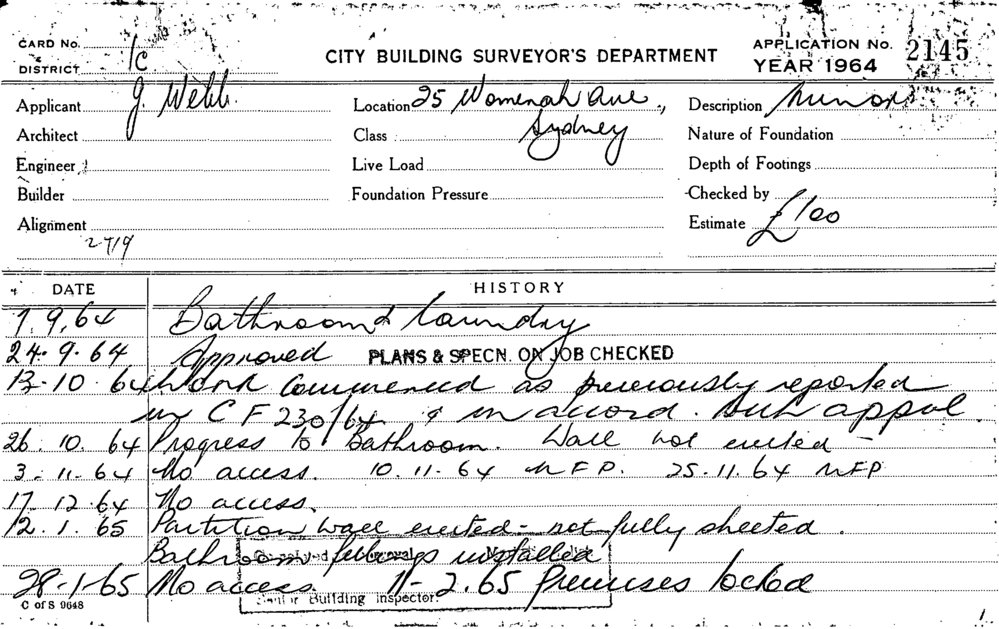 CARD No.
DISTRICT 1C
CITY BUILDING SURVEYOR'S DEPARTMENT
APPLICATION No. 2145
YEAR 1964
Applicant J. Webb.
Location 25 Womerah Ave., Sydney
Description Minor
Architect
Class
Nature of Foundation
Engineer
Live Load
Depth of Footings
Builder
Foundation Pressure
Checked by
Alignment
Estimate £100
27/9
DATE HISTORY
7.9.64 Bathroom & laundry
24.9.64 Approved PLANS & SPECN. ON JOB CHECKED
13.10.64 Work commenced as previously reported
C F 230/64 & in accord. with appvl
26.10.64 Progress to Bathroom. Wall not erected -
3.11.64 No access. 10.11.64 NFP. 25.11.64 NFP
17.12.64 No access.
12.1.65 Partition wall erected - not fully sheeted.
Bathroom fittings installed
28-1-65 No access. 11-2.65 Premises locked
Senior Building Inspector.
C of S 9648
1.